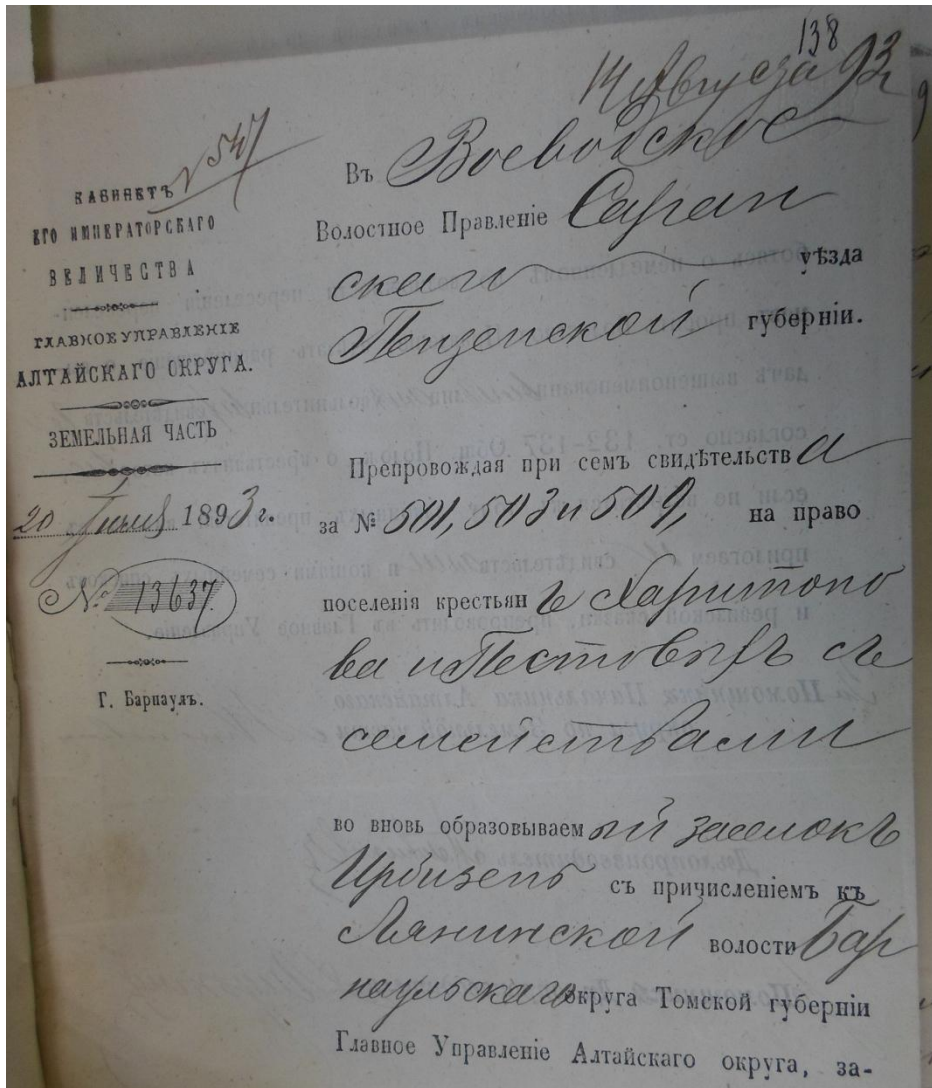 138
14 Августа 93 г
№ 547
КАБИНЕТЪ
ЕГО ИМПЕРАТОРСКАГО
ВЕЛИЧЕСТВА
ГЛАВНОЕ УПРАВЛЕНІЕ
АЛТАЙСКАГО ОКРУГА.
ЗЕМЕЛЬНАЯ ЧАСТЬ
20 Іюля 1893 г.
№ 13637.
Г. Барнаулъ.
Въ Воеводское
Волостное Правленіе Саран
скаго уѣзда
Пензенской губерніи.
Препровождая при семъ свидѣтельства
за № 501, 503 и 509, на право
поселенія крестьянъ Харитоно
ва и Пестовыхъ съ
семействами
во вновь образовываемый заселокъ
Урбизенъ съ причисленіемъ къ
Лянинской волости Бар
наульскаго округа Томской губерніи
Главное Управленіе Алтайскаго округа, за-